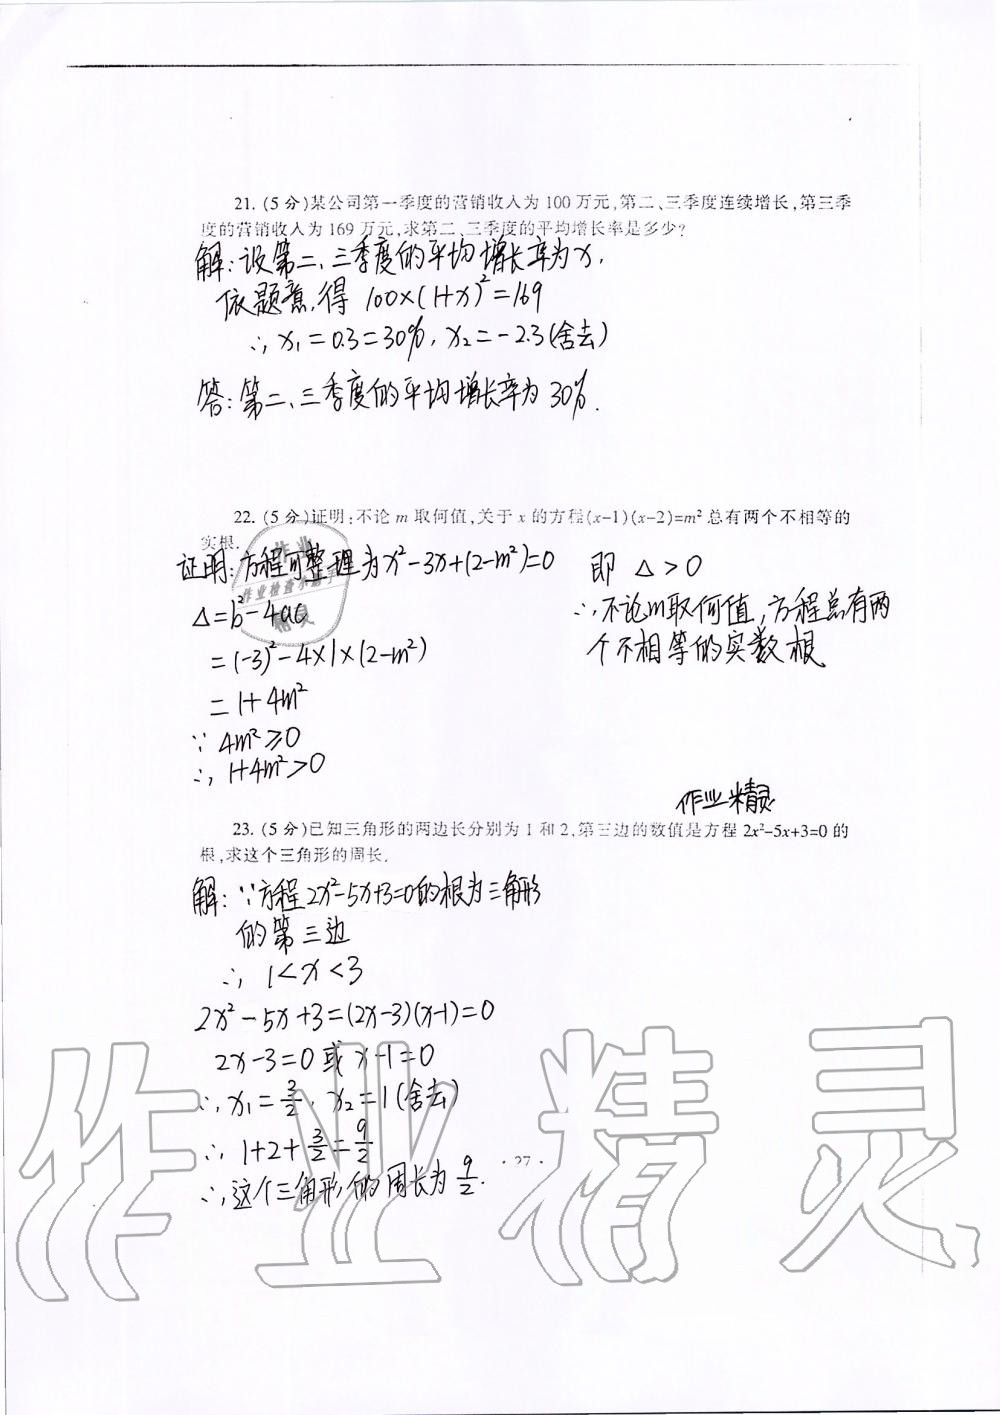 21. (5 分)某公司第一季度的营销收入为 100 万元,第二、三季度连续增长,第三季
度的营销收入为 169 万元,求第二、三季度的平均增长率是多少?
解:设第二、三季度的平均增长率为x,
依题意,得 100×(1+x)²=169
∴x₁=0.3=30%, x₂=-2.3(舍去)
答:第二、三季度的平均增长率为30%.
22. (5 分)证明:不论 m 取何值,关于 x 的方程(x-1)(x-2)=m² 总有两个不相等的
实根.
证明:方程可整理为x²-3x+(2-m²)=0
Δ=b²-4ac
=(-3)²-4×1×(2-m²)
=1+4m²
∵ 4m²≥0
∴ 1+4m²>0
即 Δ>0
∴不论m取何值,方程总有两
个不相等的实数根
作业检查小助手
作业精灵
23. (5 分)已知三角形的两边长分别为 1 和 2,第三边的数值是方程 2x²-5x+3=0 的
根,求这个三角形的周长.
解:∵方程2x²-5x+3=0的根为三角形
的第三边
∴ 1<x<3
2x²-5x+3=(2x-3)(x-1)=0
2x-3=0 或 x-1=0
∴x₁=3/2, x₂=1(舍去)
∴ 1+2+3/2=9/2
∴这个三角形的周长为9/2.
· 27 ·
作业精灵